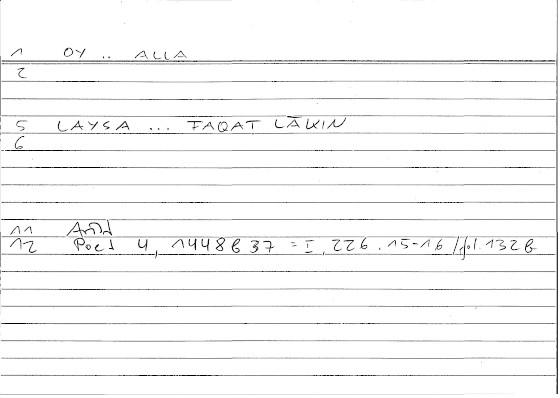 1 OY .. ALLA
2
5 LAYSA ... FAQAT LĀKIN
6
11
12 Poet 4, 1448b37 = I, 226.15-16 / fol.132b